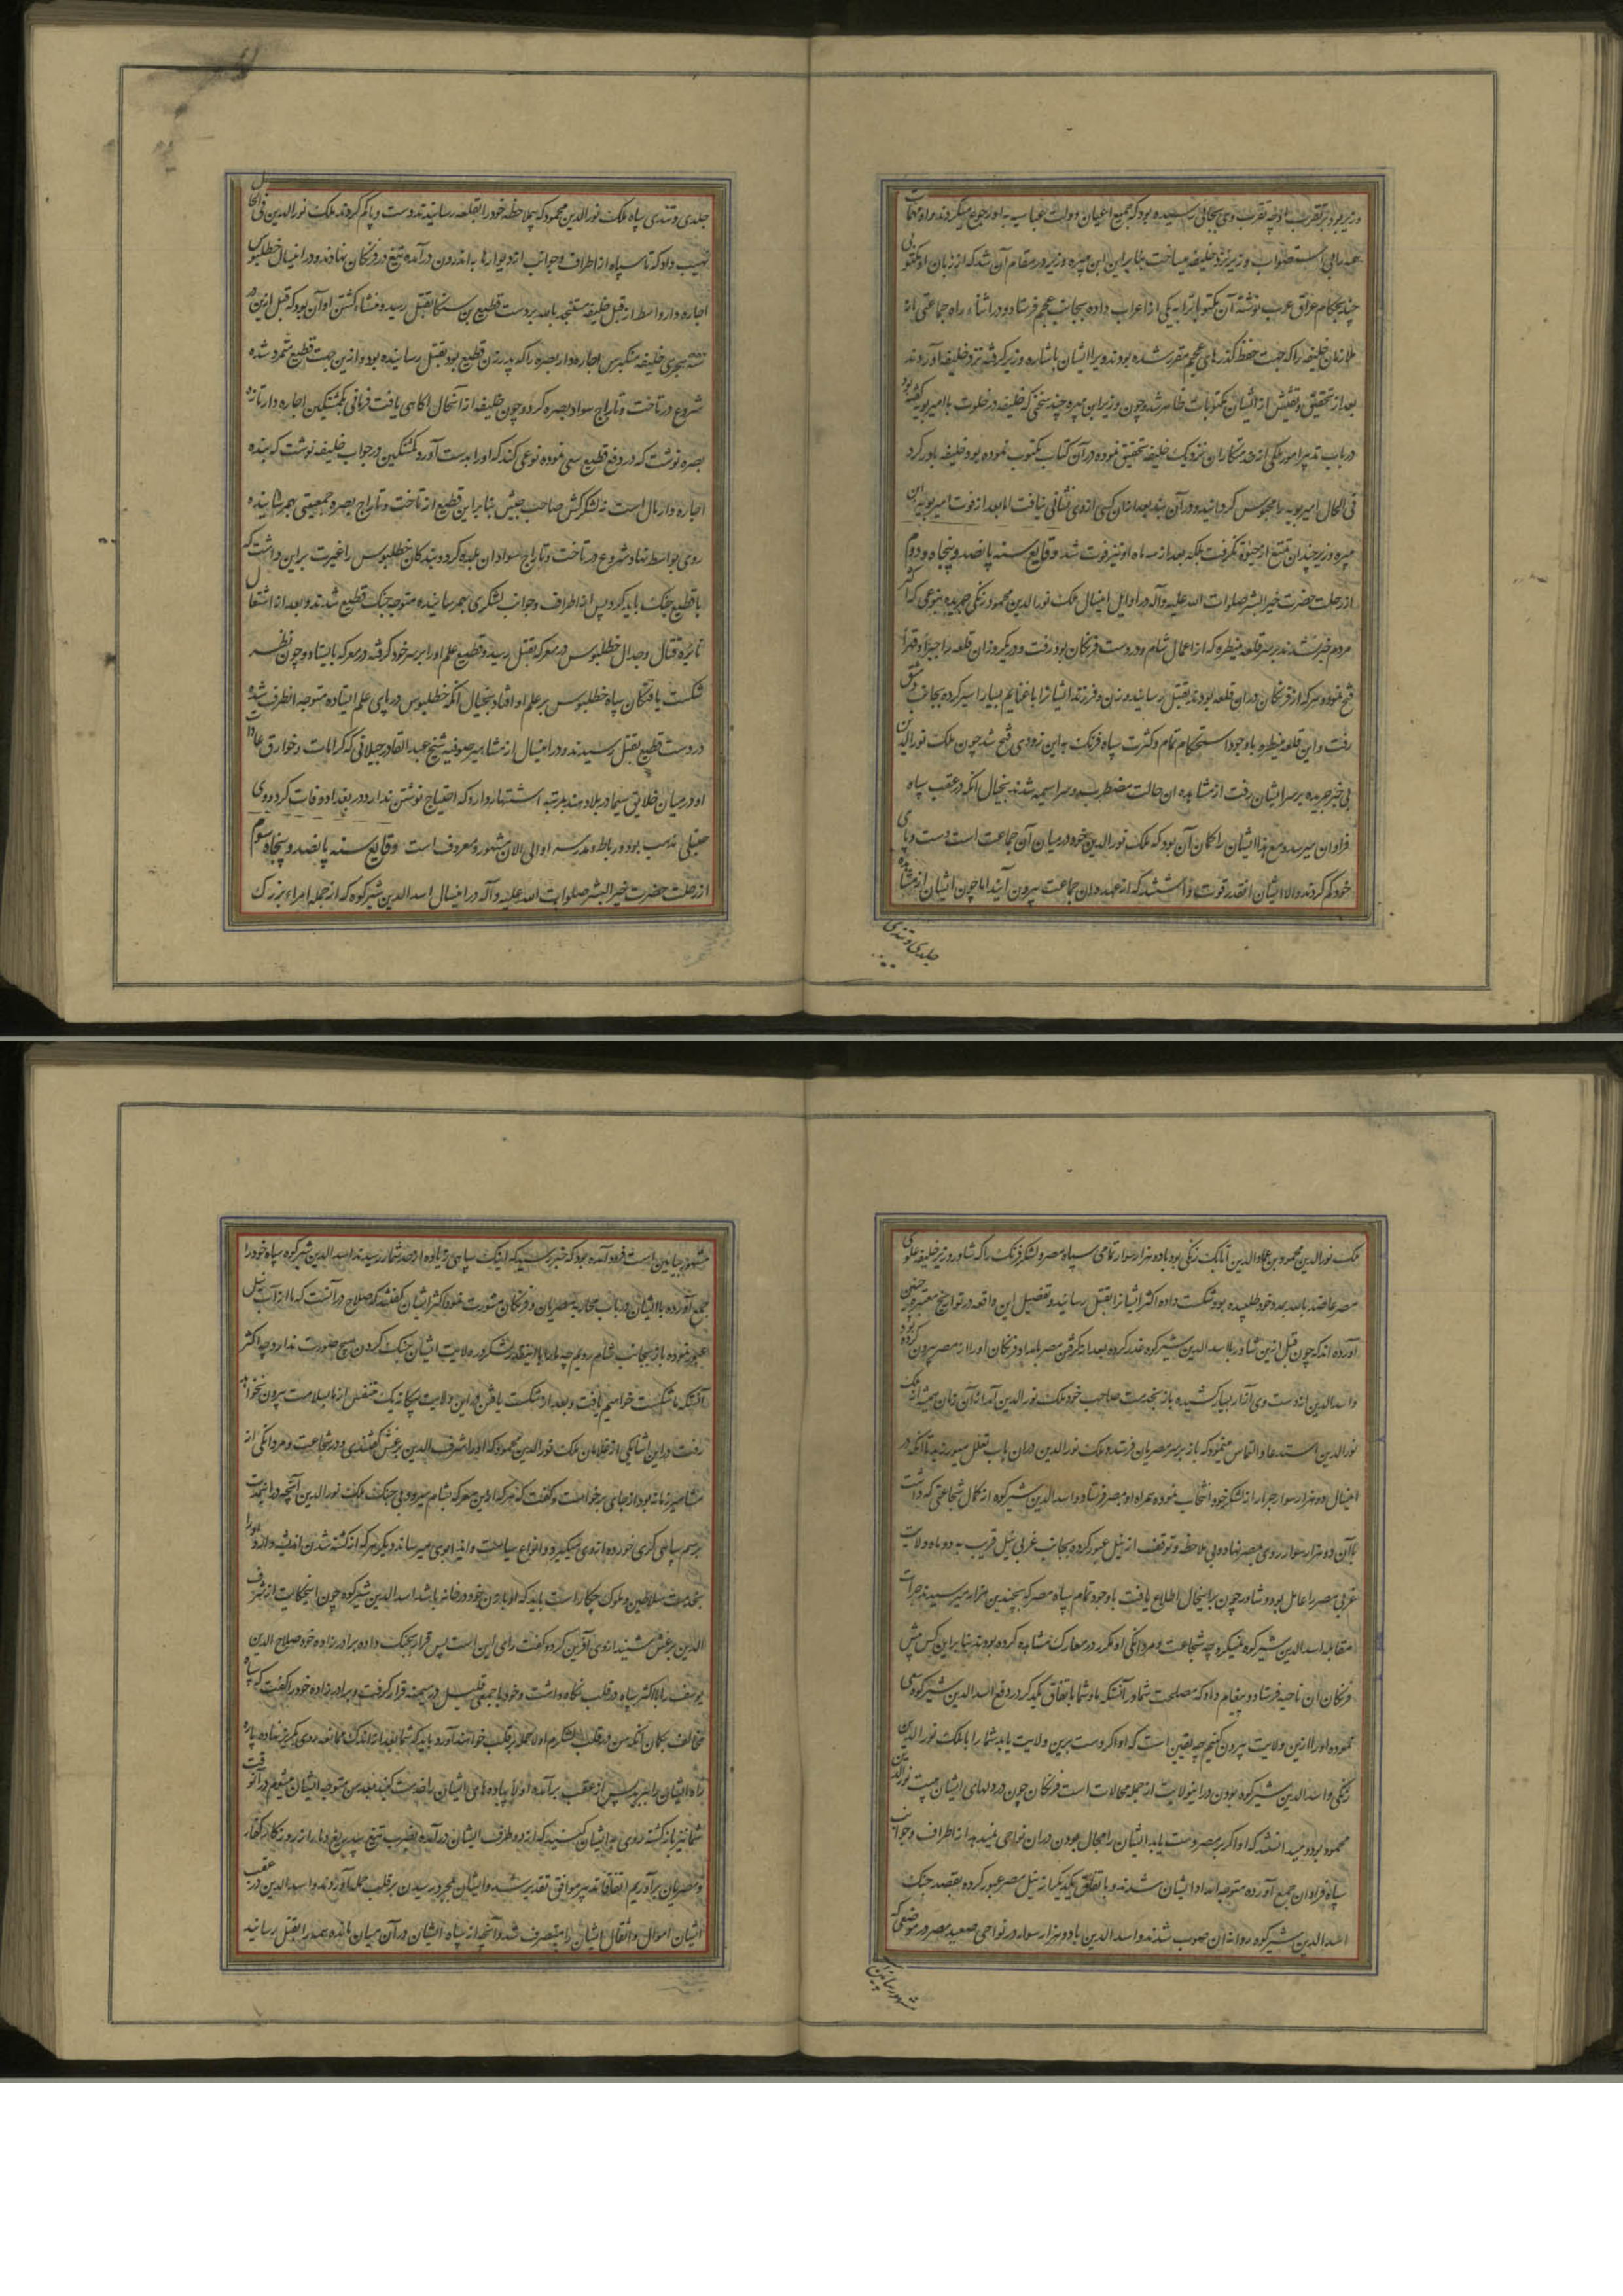 وزیر بود بر تقرب او چه تقرب وی بجائی رسیده بود که جمیع اعیان دولت عباسیه به او رجوع میکردند و او مهمات
همه را می استصواب وزیر نزد خلیفه میساخت بنا براین ابن هبیره وزیر در مقام آن شد که از زبان او مکتوبی
چند بحکام عراق عرب نوشته آن مکتوباترا به یکی از اعراب داده بجانب عجم فرستاد و در اثناء راه جماعتی از
ملازمان خلیفه را که جهت حفظ گذرهای عجم مقرر شده بودند ویرا ایشان باشاره وزیر گرفته نزد خلیفه آوردند
بعد از تحقیق و تفتیش از ایشان مکتوبات ظاهر شد و چون وزیر ابن هبیره چند سخنی که خلیفه در خلوت با امیر بوبه گفته بود
در باب تدبیر امور ملکی از خدمتکاران نزدیک خلیفه تحقیق نموده در آن کتاب مکتوب نموده بود خلیفه باور کرد
فی الحال امیر بوبه را محبوس گردانید و در آن بند بعد از آن کسی از وی نشانی نیافت اما بعد از فوت امیر بوبه ابن
هبیره وزیر چندان تمتع از حیوة نگرفت بلکه بعد از سه ماه او نیز فوت شد وقایع سنه پانصد و پنجاه و دوم
از رحلت حضرت خیر البشر صلوات الله علیه و آله در اوایل امسال ملک نورالدین محمود زنگی جریده بنوعی که اکثر
مردم خبر نشدند بر سر قلعه منیطره که از اعمال شام و در دست فرنگان بود رفت و در یکروز آن قلعه را جبراً و قهراً
فتح نموده هر که از فرنگان در آن قلعه بودند بقتل رسانید و زن و فرزند ایشانرا با غنایم بسیار اسیر کرده بجانب دمشق
رفت و این قلعه منیطره باوجود استحکام تمام و کثرت سپاه فرنگ به این زودی فتح شد چون ملک نورالدین
بی خبر جریده بر سر ایشان رفت از مشاهده آن حالت مضطرب و سراسیمه شدند بخیال انکه در عقب سپاه
فراوان میرسد و مع هذا ایشان را گمان آن بود که ملک نورالدین خود در میان آن جماعت است دست و پای
خود گم کردند و الا ایشان انقدر قوت داشتند که از عهده آن جماعت بیرون آیند اما چون ایشان از مشاهده
جلدی و تندی
جلدی و تندی سپاه ملک نورالدین محمود که بیملاحظه خود را بقلعه رسانیدند دست و پا گم کردند ملک نورالدین فی الحال
نهیب داد که تا سپاه از اطراف و جوانب از دیوارها به اندرون درآمده تیغ در فرنگان نهادند و در امسال خطلبرس
اجاره دار واسط از قبل خلیفه مستنجد بالله بر دست قطیع بن سنکا بقتل رسید و منشاء کشتن او آن بود که قبل ازین در
سنه هجری خلیفه منکبرس اجاره دار بصره را که پدر زن قطیع بود بقتل رسانیده بود و ازین جهت قطیع متمرد شده
شروع در تاخت و تاراج سواد بصره کرد و چون خلیفه از آنحال آگاهی یافت فرمانی بکمشتکین اجاره دار تازه
بصره نوشت که در دفع قطیع سعی نموده نوعی کند که او را بدست آورد کمشتکین در جواب خلیفه نوشت که بنده
اجاره دار مال است نه لشکرکش صاحب جیش بنا براین قطیع از تاخت و تاراج بصره جمعیتی بهم رسانیده
روی بواسط نهاد و شروع در تاخت و تاراج سوادان بلده کرد و بندکان خطلبرس را غیرت براین داشت که
با قطیع جنک باید کرد پس از اطراف و جوانب لشکری بهم رسانیده متوجه جنک قطیع شدند و بعد از اشتعال
نایره قتال و جدال خطلبرس در معرکه بقتل رسید و قطیع علم او را بر سر خود گرفته در معرکه بایستاد و چون نظر
شکست یافتکان سپاه خطلبرس بر علم او افتاد بخیال انکه خطلبرس در پای علم ایستاده متوجه انطرف شد و
در دست قطیع بقتل رسیدند و در امسال از مشاهیر صوفیه شیخ عبدالقادر جیلانی که کرامات و خوارق عادات
او در میان خلایق سیما در بلاد هند بمرتبه اشتهار دارد که احتیاج نوشتن ندارد در بغداد وفات کرد و وی
حنبلی مذهب بود و رباط و مدرسه او الی الان مشهور و معروف است وقایع سنه پانصد و پنجاه سوم
از رحلت حضرت خیر البشر صلوات الله علیه و آله در امسال اسد الدین شیرکوه که از جمله امراء بزرک
ملک نورالدین محمود بن عماد الدین اتابک زنگی بود با دو هزار سوار تمامی سپاه مصر و لشکر فرنک را که شاور وزیر خلیفه علوی
مصر عاضد بالله بمدد خود طلبیده بود شکست داده اکثر ایشانرا بقتل رسانید و تفصیل این واقعه در تواریخ معتبره چنین
آورده اند که چون قبل ازین شاور با اسد الدین شیرکوه غدر کرده بعد از گرفتن مصر بامداد فرنکان او را از مصر بیرون کرده بود
و اسد الدین از دست وی آزار بسیار کشیده باز بخدمت صاحب خود ملک نورالدین آمد از آن زمان همیشه از ملک
نورالدین استدعا و التماس مینمود که باز بر سر مصریان فرستد و ملک نورالدین در آن باب تعلل میورزید تا آنکه در
امسال دو هزار سوار جرار از لشکر خود انتخاب نموده همراه او بمصر فرستاد و اسد الدین شیرکوه از کمال شجاعتی که داشت
با آن دو هزار سوار روی بمصر نهاد و بی ملاحظه و توقف از نیل عبور کرده بجانب غربی نیل قریب به دو ماه ولایت
غربی مصر را عامل بود و شاور چون بر اینحال اطلاع یافت باوجود تمام سپاه مصر که بچندین هزار میرسید جرات
مقابله اسد الدین شیرکوه نمیکرد چه شجاعت و مردانگی او مکرر در معارک مشاهده کرده بودند بنا براین کس پیش
فرنکان ان ناحیه فرستاد و پیغام داد که مصلحت شما در آنست که ما و شما باتفاق یکدیگر در دفع اسد الدین شیرکوه سعی
نموده او را ازین ولایت بیرون کنیم چه یقین است که او اگر دست برین ولایت یابد شما را با ملک نورالدین
زنگی و اسد الدین شیرکوه بودن در این ولایت از جمله محالات است فرنکان چون در دلهای ایشان هیبت نورالدین
محمود بود و میدانستند که او اگر بر مصر دست یابد ایشان را مجال بودن در ان نواحی نمیدهد از اطراف و جوانب
سپاه فراوان جمع آورده متوجه امداد ایشان شدند و باتفاق یکدیگر از نیل مصر عبور کرده بقصد جنک
اسد الدین شیرکوه روانه ان صوب شدند و اسد الدین با دو هزار سوار در نواحی صعید مصر در موضعی که
مشهور ببابین
مشهور ببابین است فرود آمده بود که خبر رسید که اینک سپاهی زیاده از حد شمار رسیدند اسد الدین شیرکوه سپاه خود را
جمع آورده با ایشان در باب محاربه مصریان و فرنکان مشورت نمود اکثر ایشان گفتند که صلاح در آنست که ما از آب نیل
عبور نموده باز بجانب شام رویم چه ما را با اینقدر لشکر در ولایت ایشان جنک کردن هیچ صورت ندارد چه اکثر
آنستکه ما شکست خواهیم یافت و بعد از شکست یافتن در این ولایت بیکانه یک متنفس از ما سلامت بیرون نخواهد
رفت در این اثنا یکی از غلامان ملک نورالدین محمود که او را شرف الدین برغش گفتندی و در شجاعت و مردانگی از
مشاهیر زمانه بود از جای برخواست و گفت که هرکه از این معرکه بشام میرود بی جنگ ملک نورالدین آنچه در اینمدت
برسم سپاهی گری خورده از وی میگیرد و انواع سیاست و ایذا بوی میرساند دیگر هرکه از کشته شدن اندیشه دارد او را
بخدمت سلاطین و ملوک چکار است باید که او با زن خود در خانه باشد اسد الدین شیرکوه چون اینحکایت از شرف
الدین برغش شنید از وی آفرین کرد و گفت رای این است پس قرار بجنک داده برادرزاده خود صلاح الدین
یوسف را با اکثر سپاه در قلب نگاه داشت و خود با جمعی قلیل در میمنه قرار گرفت و برادرزاده خود را گفت که سپاه
مخالف بگمان آنکه من در قلب لشکرم اولا حمله بر قلب خواهند آورد باید که شما بعد از اندک ممانعه روی بگریز نهاده پاره
راه ایشان را ببرید پس از عقب برآمده اولا پیاده های ایشان را خدمت کنیم بعد من متوجه ایشان میشوم در آنوقت
شما نیز بازگشته روی به ایشان کنید که از دو طرف ایشان درآمده بضرب تیغ بیدریغ دمار از روزگار کفار
و مصریان برآوریم اتفاقا تدبیر موافق تقدیر شد و ایشان بمجرد رسیدن بر قلب حمله آوردند و اسد الدین در عقب
ایشان اموال و اثقال ایشان را متصرف شد و آنچه از سپاه ایشان در آن میان مانده همه را بقتل رسانید